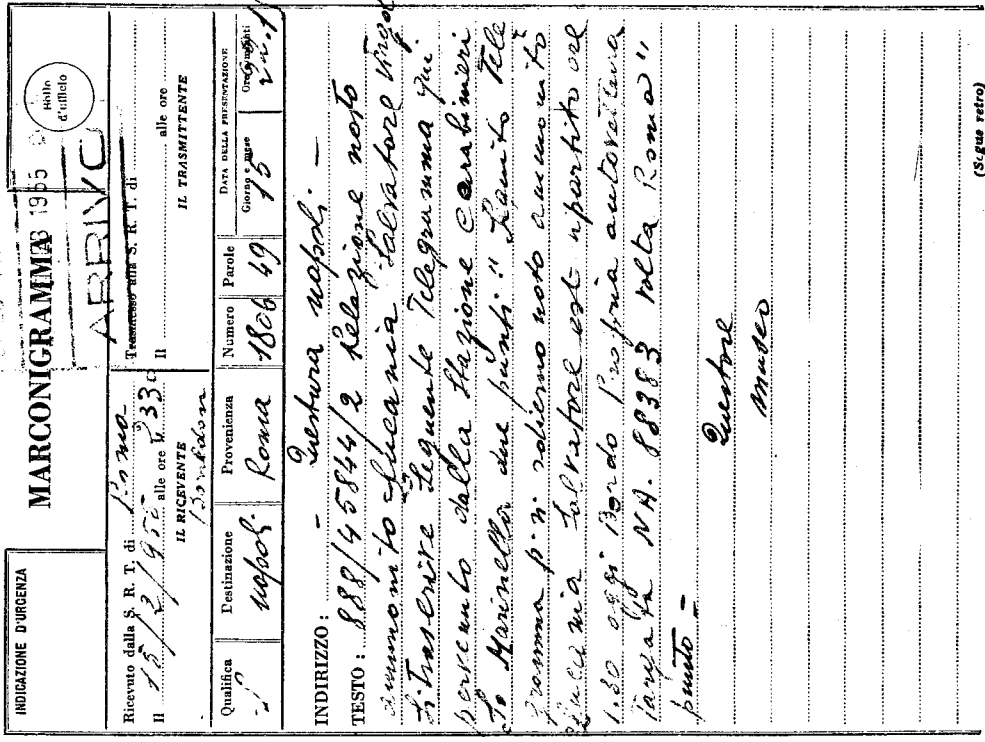 INDICAZIONE D'URGENZA
MARCONIGRAMMA
1955
Bollo
d'ufficio
ARRIVO
Ricevuto dalla S. R. T. di Roma
Trasmesso alla S. R. T. di
Il 15/2/955 alle ore
Il alle ore
IL RICEVENTE
IL TRASMITTENTE
Qualifica Destinazione Provenienza Numero Parole DATA DELLA PRESENTAZIONE
Giorno e mese Ore e minuti
Napoli Roma 1806 49 15
INDIRIZZO: - Questura Napoli -
TESTO: 888/45844/2 Relazione noto
ammonito Lucania Salvatore
si trascrive seguente Telegramma qui
pervenuto dalla Stazione Carabinieri
Marinella due punti " Tele
gramma p.n. odierno noto ammonito
Lucania Salvatore est ripartito ore
1.30 oggi Bordo Propria autovettura
Targata NA. 88383 volta Roma "
punto =
Questore
Musco
(Segue retro)